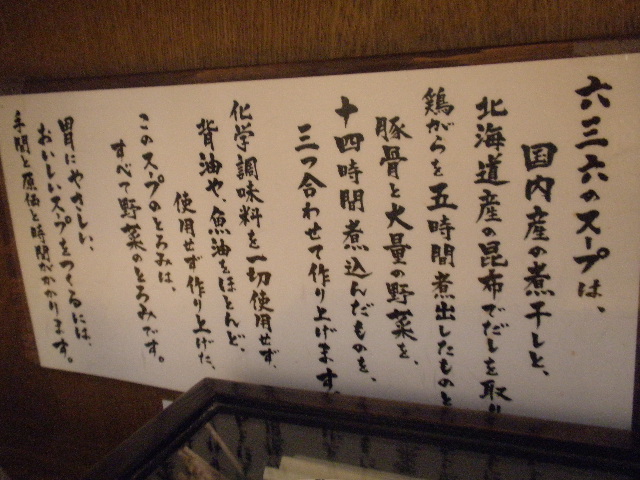 六三六のスープは、
国内産の煮干しと、
北海道産の昆布でだしを取り
鶏がらを五時間煮出したものと
豚骨と大量の野菜を、
十四時間煮込んだものを、
三つ合わせて作り上げます。
化学調味料を一切使用せず、
背油や、魚油をほとんど、
使用せず作り上げた、
このスープのとろみは、
すべて野菜のとろみです。
胃にやさしい、
おいしいスープをつくるには、
手間と原価と時間がかかります。